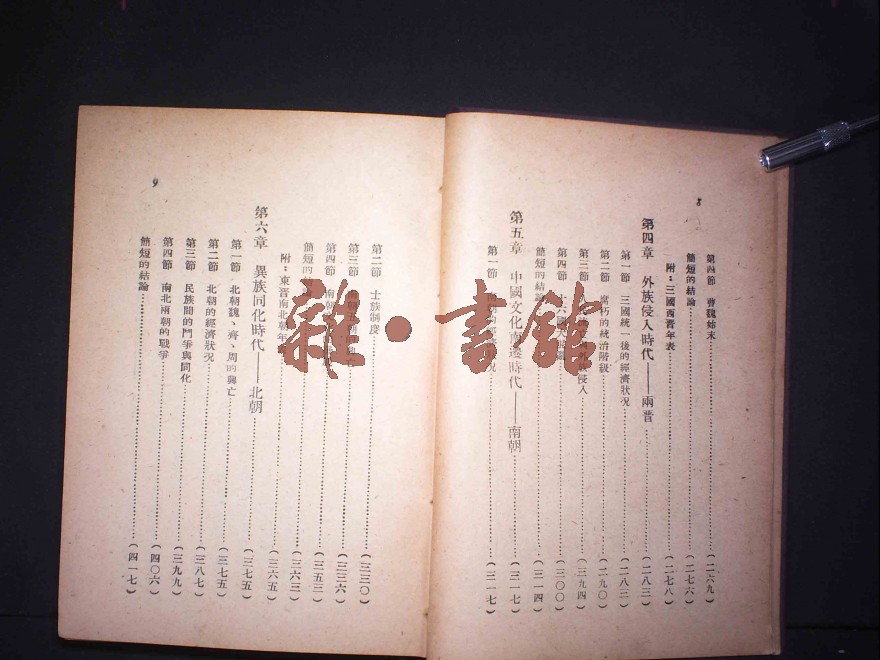 8
第四節 曹魏始末……(二六九)
簡短的結論……(二七六)
附:三國西晋年表……(二七八)
第四章 外族侵入時代——兩晋……(二八三)
第一節 三國統一後的經濟狀况……(二八三)
第二節 腐朽的統治階級……(二九〇)
第三節 外族侵入……(二九四)
第四節 十六國……(三〇〇)
簡短的結論……(三一四)
第五章 中國文化南遷時代——南朝……(三一七)
第一節 經濟狀况……(三一七)
第二節 士族制度……(三三〇)
第三節 南朝……(三三六)
第四節 南朝……(三五三)
簡短的結論……(三六三)
附:東晋南北朝年……(三六五)
第六章 異族同化時代——北朝……(三七五)
第一節 北朝魏、齊、周的興亡……(三七五)
第二節 北朝的經濟狀况……(三八七)
第三節 民族間的鬥爭與同化……(三九九)
第四節 南北兩朝的戰爭……(四〇六)
簡短的結論……(四一七)
9
雜·書館